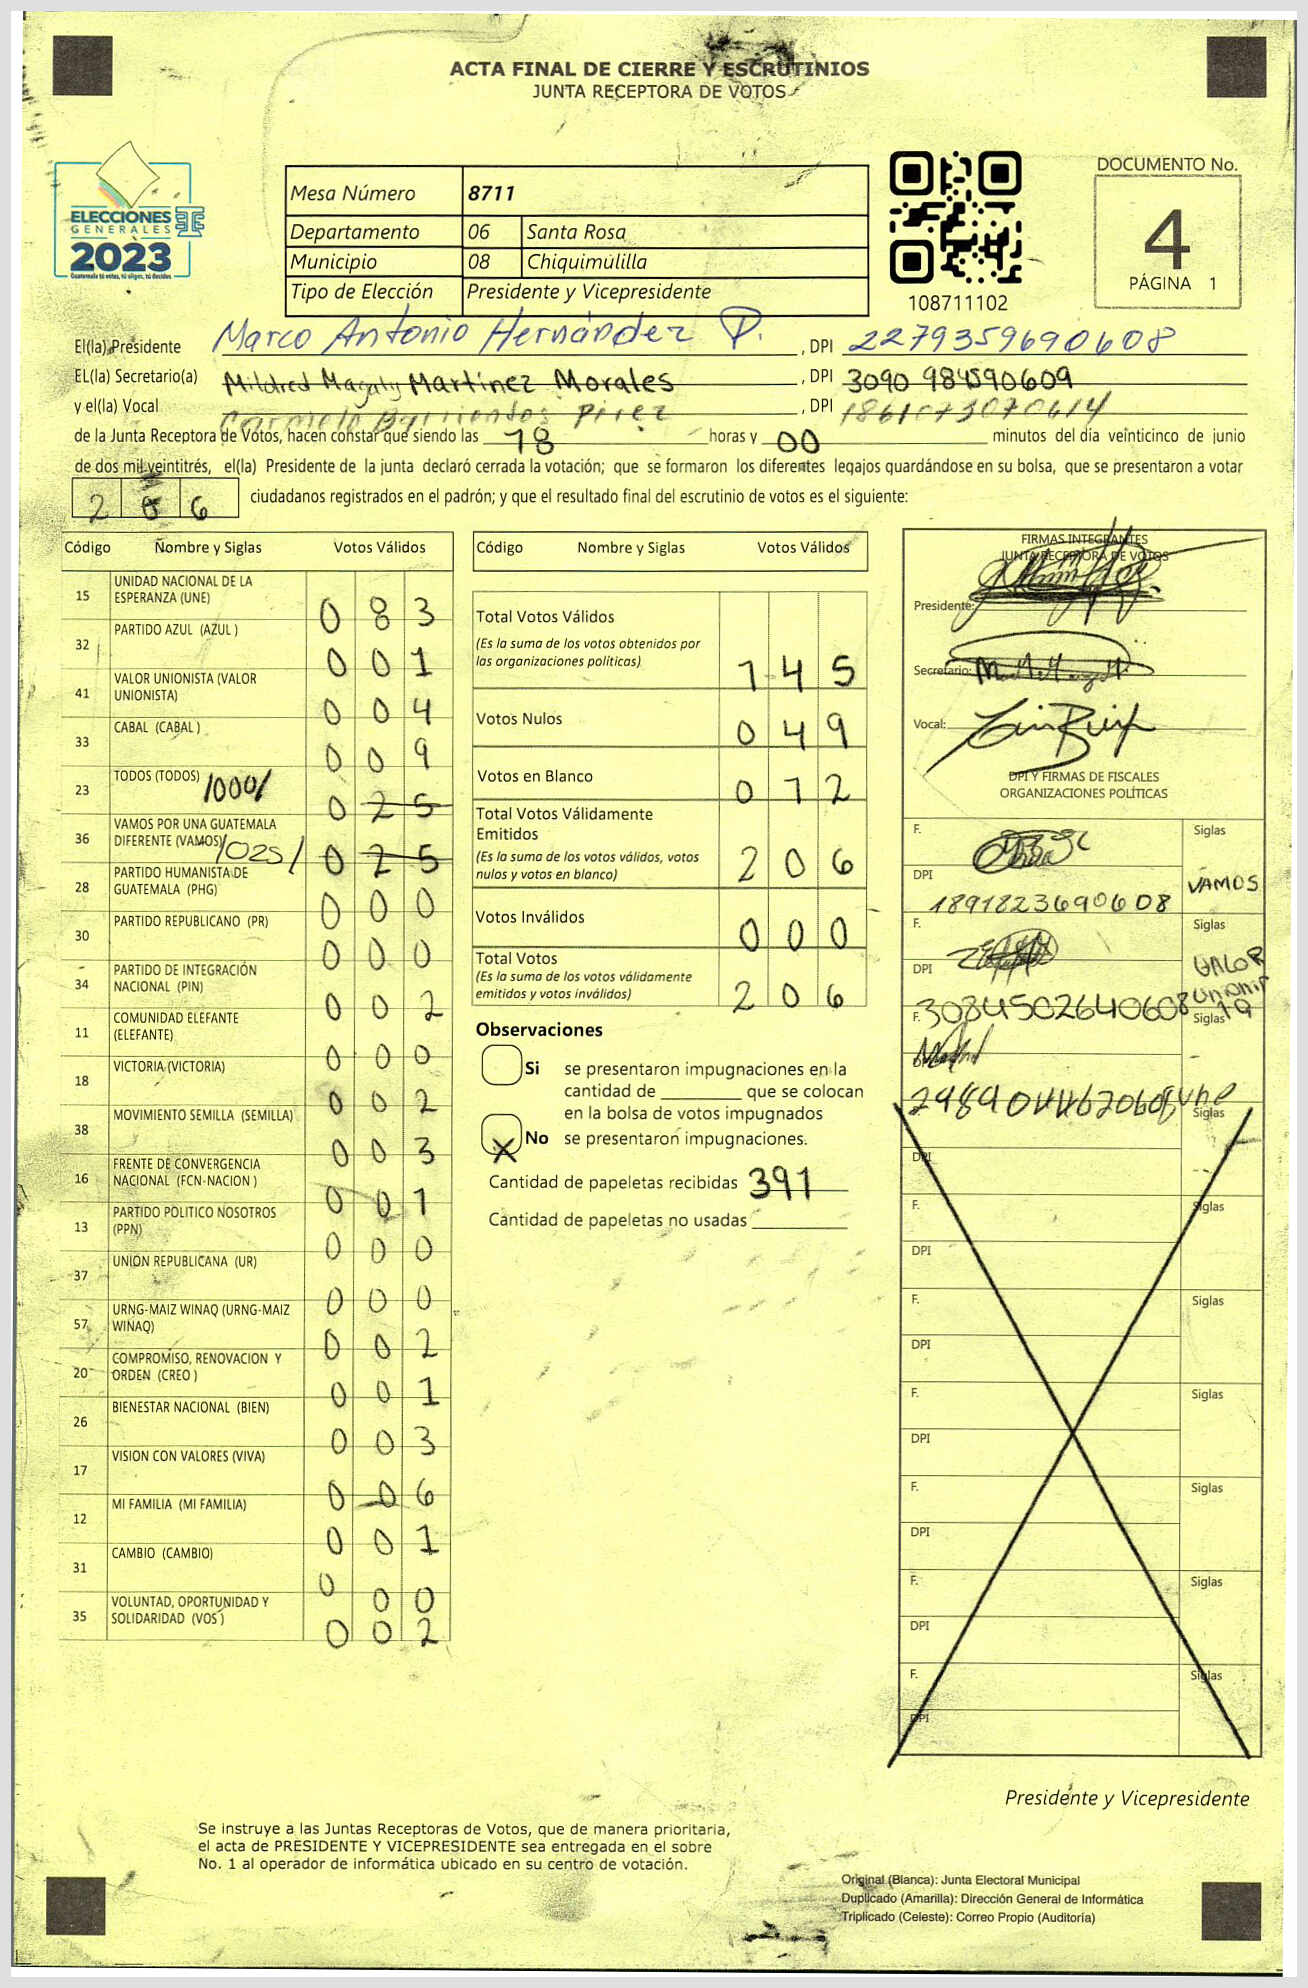 ACTA FINAL DE CIERRE Y ESCRUTINIOS
JUNTA RECEPTORA DE VOTOS
ELECCIONES
GENERALES
2023
Guatemala tú votas, tú eliges, tú decides
Mesa Número 8711
Departamento 06 Santa Rosa
Municipio 08 Chiquimulilla
Tipo de Elección Presidente y Vicepresidente
108711102
DOCUMENTO No.
4
PÁGINA 1
El(la) Presidente Marco Antonio Hernández P. , DPI 2279359690608
EL(la) Secretario(a) Mildred Magaly Martínez Morales , DPI 3090 984590609
y el(la) Vocal Carmelo Barrientos Pirez , DPI 1861073070614
de la Junta Receptora de Votos, hacen constar que siendo las 18 horas y 00 minutos del día veinticinco de junio
de dos mil veintitrés, el(la) Presidente de la junta declaró cerrada la votación; que se formaron los diferentes legajos quardándose en su bolsa, que se presentaron a votar
2 0 6 ciudadanos registrados en el padrón; y que el resultado final del escrutinio de votos es el siguiente:
Código Nombre y Siglas Votos Válidos
15 UNIDAD NACIONAL DE LA ESPERANZA (UNE) 0 8 3
32 PARTIDO AZUL (AZUL ) 0 0 1
41 VALOR UNIONISTA (VALOR UNIONISTA) 0 0 4
33 CABAL (CABAL ) 0 0 9
23 TODOS (TODOS) /000/ 0 2 5
36 VAMOS POR UNA GUATEMALA DIFERENTE (VAMOS) /025/ 0 2 5
28 PARTIDO HUMANISTA DE GUATEMALA (PHG) 0 0 0
30 PARTIDO REPUBLICANO (PR) 0 0 0
34 PARTIDO DE INTEGRACIÓN NACIONAL (PIN) 0 0 2
11 COMUNIDAD ELEFANTE (ELEFANTE) 0 0 0
18 VICTORIA (VICTORIA) 0 0 2
38 MOVIMIENTO SEMILLA (SEMILLA) 0 0 3
16 FRENTE DE CONVERGENCIA NACIONAL (FCN-NACION ) 0 0 1
13 PARTIDO POLITICO NOSOTROS (PPN) 0 0 0
37 UNION REPUBLICANA (UR) 0 0 0
57 URNG-MAIZ WINAQ (URNG-MAIZ WINAQ) 0 0 2
20 COMPROMISO, RENOVACION Y ORDEN (CREO ) 0 0 1
26 BIENESTAR NACIONAL (BIEN) 0 0 3
17 VISION CON VALORES (VIVA) 0 0 6
12 MI FAMILIA (MI FAMILIA) 0 0 1
31 CAMBIO (CAMBIO) 0 0 0
35 VOLUNTAD, OPORTUNIDAD Y SOLIDARIDAD (VOS ) 0 0 2
Código Nombre y Siglas Votos Válidos
Total Votos Válidos
(Es la suma de los votos obtenidos por
las organizaciones políticas) 1 4 5
Votos Nulos 0 4 9
Votos en Blanco 0 1 2
Total Votos Válidamente
Emitidos
(Es la suma de los votos válidos, votos
nulos y votos en blanco) 2 0 6
Votos Inválidos 0 0 0
Total Votos
(Es la suma de los votos válidamente
emitidos y votos inválidos) 2 0 6
Observaciones
Si se presentaron impugnaciones en la
cantidad de ________ que se colocan
en la bolsa de votos impugnados
X No se presentaron impugnaciones.
Cantidad de papeletas recibidas 391
Cantidad de papeletas no usadas
FIRMAS INTEGRANTES
JUNTA RECEPTORA DE VOTOS
Presidente:
Secretario:
Vocal:
DPI Y FIRMAS DE FISCALES
ORGANIZACIONES POLÍTICAS
F. Siglas
DPI 1891823690608 VAMOS
F. Siglas
DPI 3084502640608 VALOR unionista
F. Siglas
une
F. Siglas
DPI
F. Siglas
DPI
F. Siglas
DPI
F. Siglas
DPI
F. Siglas
DPI
F. Siglas
DPI
F. Siglas
DPI
Presidente y Vicepresidente
Se instruye a las Juntas Receptoras de Votos, que de manera prioritaria,
el acta de PRESIDENTE Y VICEPRESIDENTE sea entregada en el sobre
No. 1 al operador de informática ubicado en su centro de votación.
Original (Blanca): Junta Electoral Municipal
Duplicado (Amarilla): Dirección General de Informática
Triplicado (Celeste): Correo Propio (Auditoría)